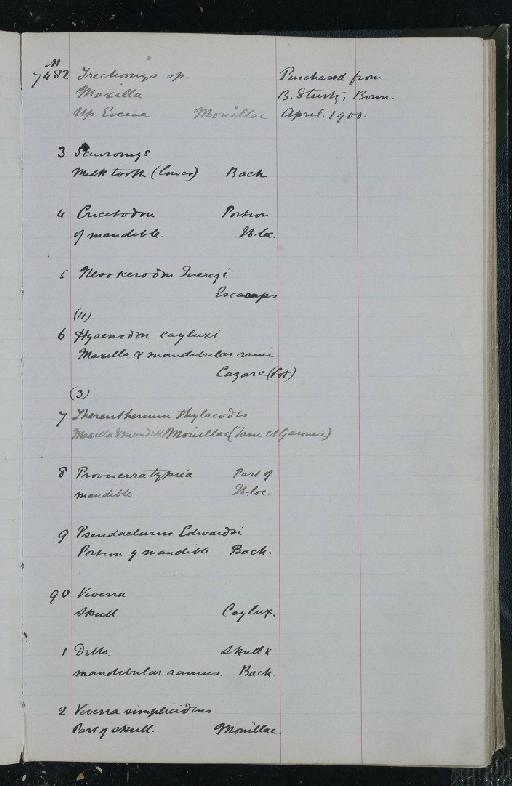 M
7482 Trechomys sp. Purchased from
Maxilla B. Sturtz, Bonn.
Up. Eocene Mouillac April. 1900.
3 Sciuromys
Milk tooth (lower) Bach
4 Cricetodon Portion
of mandible. Id. loc.
5 Nesokerodon Quercyi
Escamps
(11)
6 Hyaenodon cayluxi
Maxilla & mandibular rami
Cazarc (Lot)
(3)
7 Therentherium thylacodes
Maxilla & mandible Mouillac (Tarn et Garonne)
8 Proviverra typica Part of
mandible Id. loc.
9 Pseudaelurus Edwardsi
Portion of mandible Bach.
90 Viverra
Skull Caylux.
1 Ditto. Skull &
mandibular ramus. Bach.
2 Viverra simplicidens
Part of skull. Mouillac